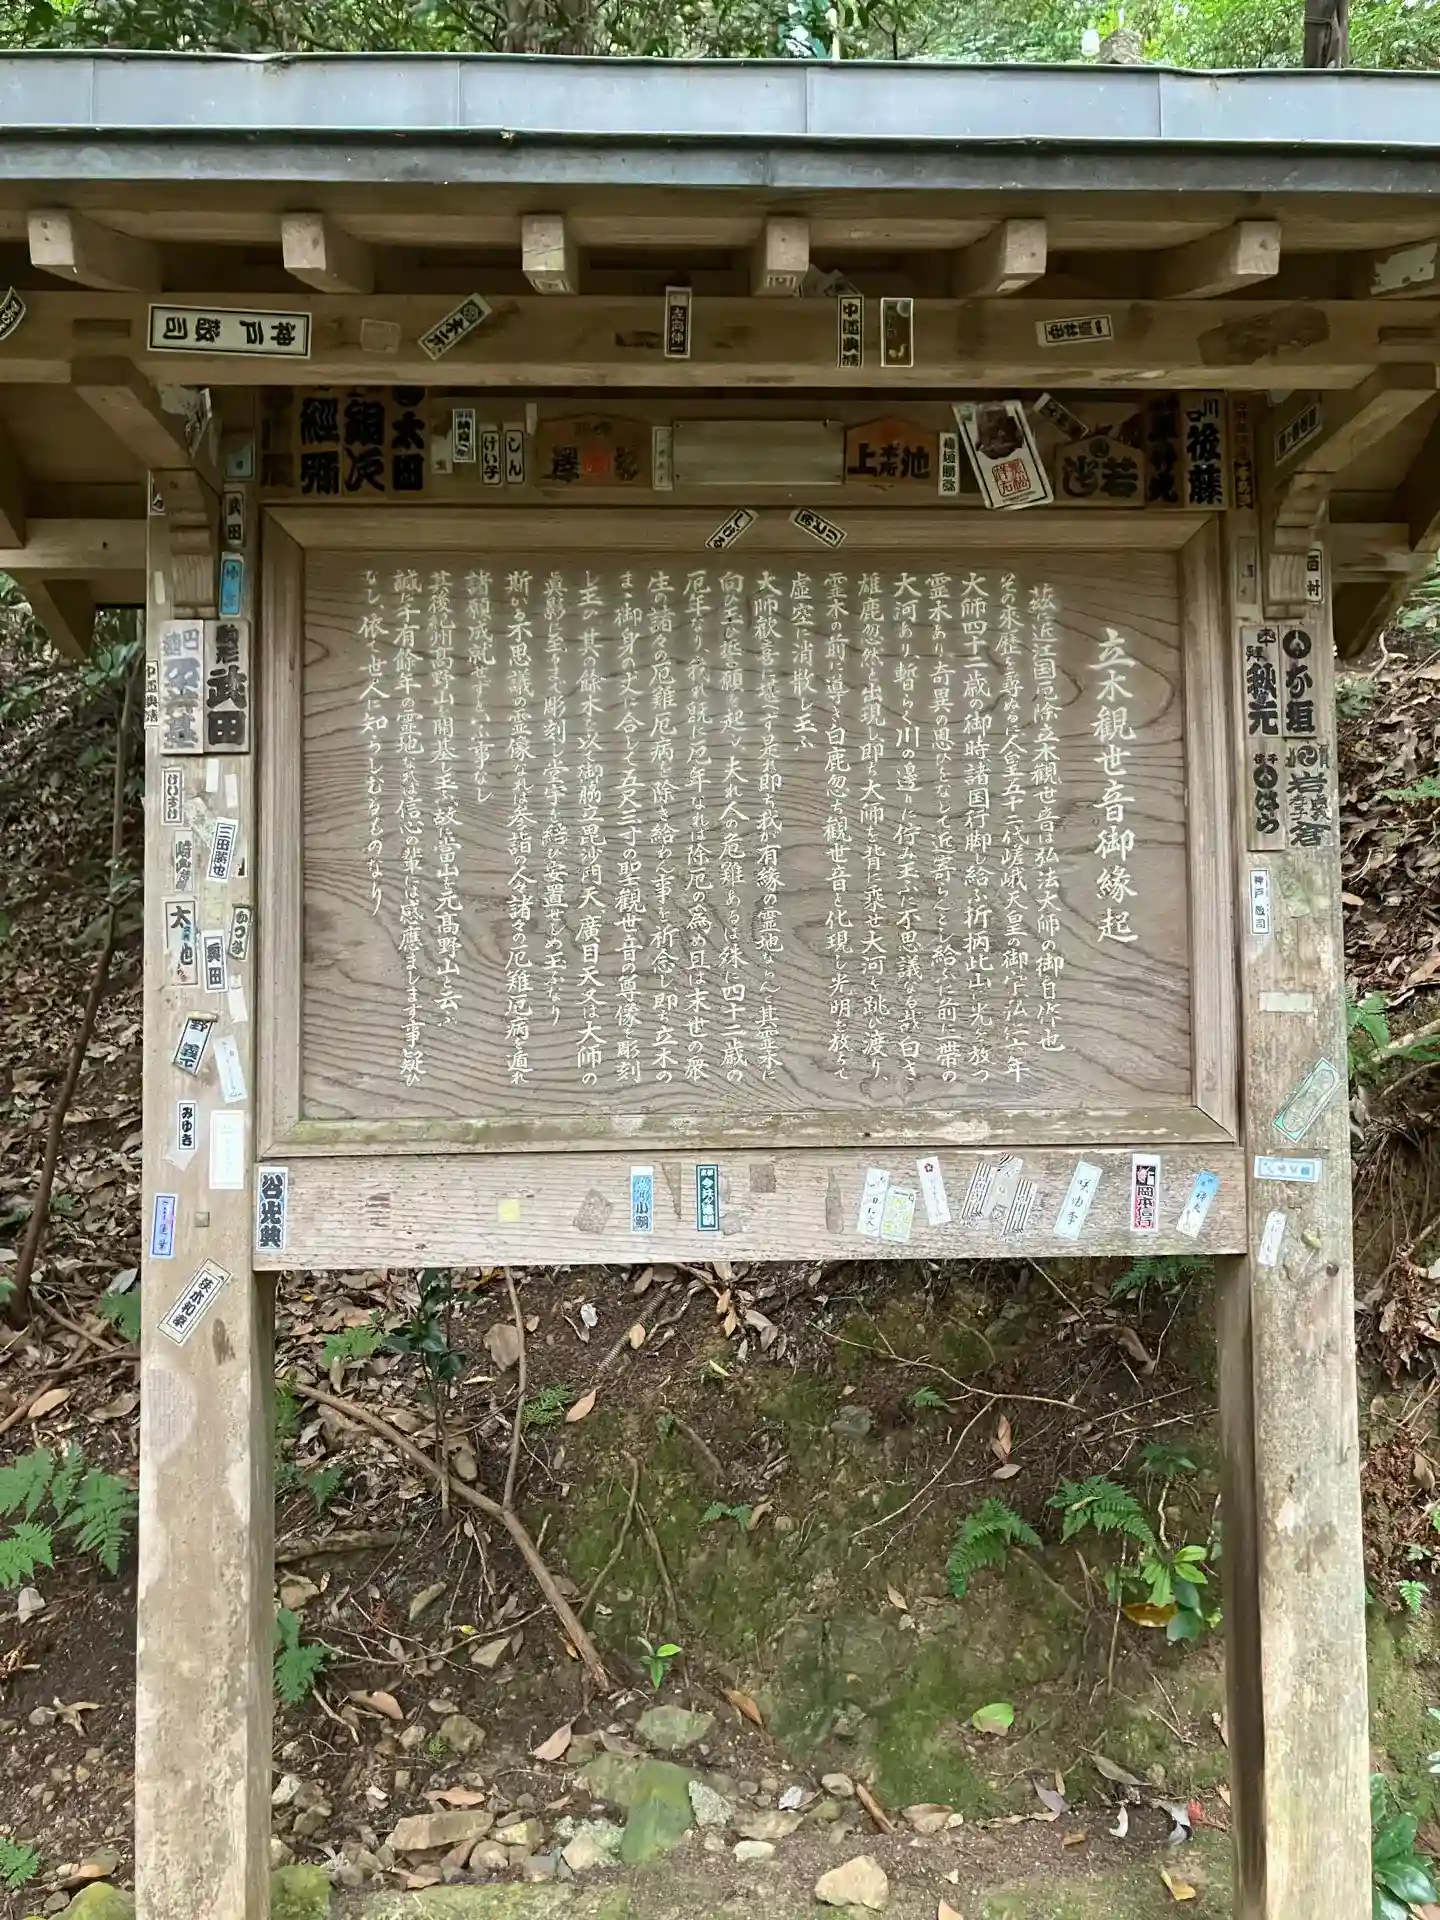 立木観世音御縁起
茲に近江国厄除立木観世音は弘法大師の御自作也
その来歴を尋ぬるに人皇五十二代嵯峨天皇の御宇、弘仁六年
大師四十二歳の御時諸国行脚し給ふ折柄此山に光を放つ
霊木あり、奇異の思ひをなして近寄らんとし給ふに前に一帯の
大河あり、暫らく川の邊りに佇み玉ふに不思議なる哉白き
雄鹿忽然と出現し即ち大師を背に乗せ大河を跳び渡り、
霊木の前に導き白鹿忽ち観世音と化現し光明を放ちて
虚空に消散し玉ふ
大師歓喜に堪へず是れ即ち我が有縁の霊地ならんと其霊木に
向ひ玉ひ誓願を起し、夫れ人の危難あるは殊に四十二歳の
厄年なり、我れ既に厄年なれば除厄の為め且は末世の衆
生の諸々の厄難厄病を除き給わん事を祈念し即ち立木の
まゝ御身の丈に合して五尺三寸の聖観世音の尊像を彫刻
し玉ひ其の餘木を以て御脇立毘沙門天、廣目天又は大師の
真影に至るまで彫刻し堂宇を結び安置せしめ玉ふなり
斯かる不思議の霊像なれば参詣の人々諸々の厄難厄病を遁れ
諸願成就せずと云ふ事なし
其後紀州髙野山を開基し玉へば故に當山を元髙野山と云ふ
誠に千有餘年の霊地なれば信心の輩には感應まします事疑ひ
なし、依て世人に知らしむるものなり
神戸啓司
太田
銀次
経弥
けい子
しん
池
上
若
後藤
西村
武田
武田
けいすけ
三田勝也
太
かつみ
奥田
みゆき
谷光興
今井
岡本信行
神戸啓司
いな垣
秋元